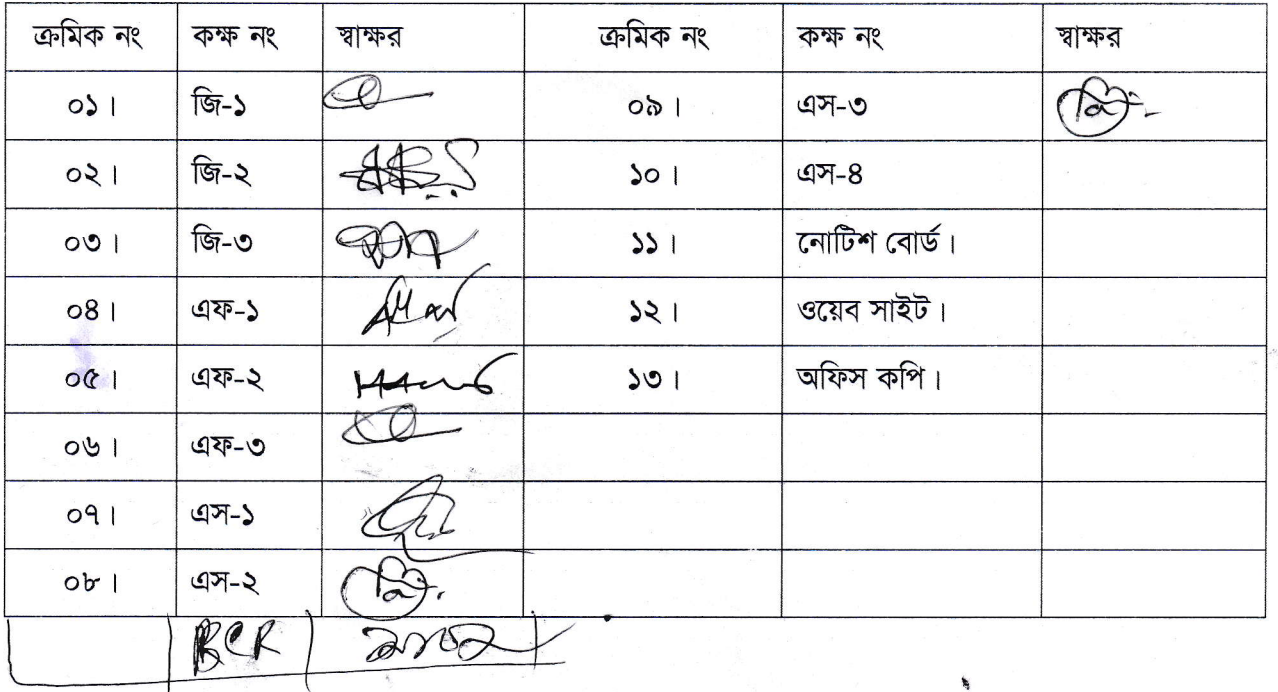 ক্রমিক নং কক্ষ নং স্বাক্ষর ক্রমিক নং কক্ষ নং স্বাক্ষর
০১। জি-১ ০৯। এস-৩
০২। জি-২ ১০। এস-৪
০৩। জি-৩ ১১। নোটিশ বোর্ড।
০৪। এফ-১ ১২। ওয়েব সাইট।
০৫। এফ-২ ১৩। অফিস কপি।
০৬। এফ-৩
০৭। এস-১
০৮। এস-২
BCR